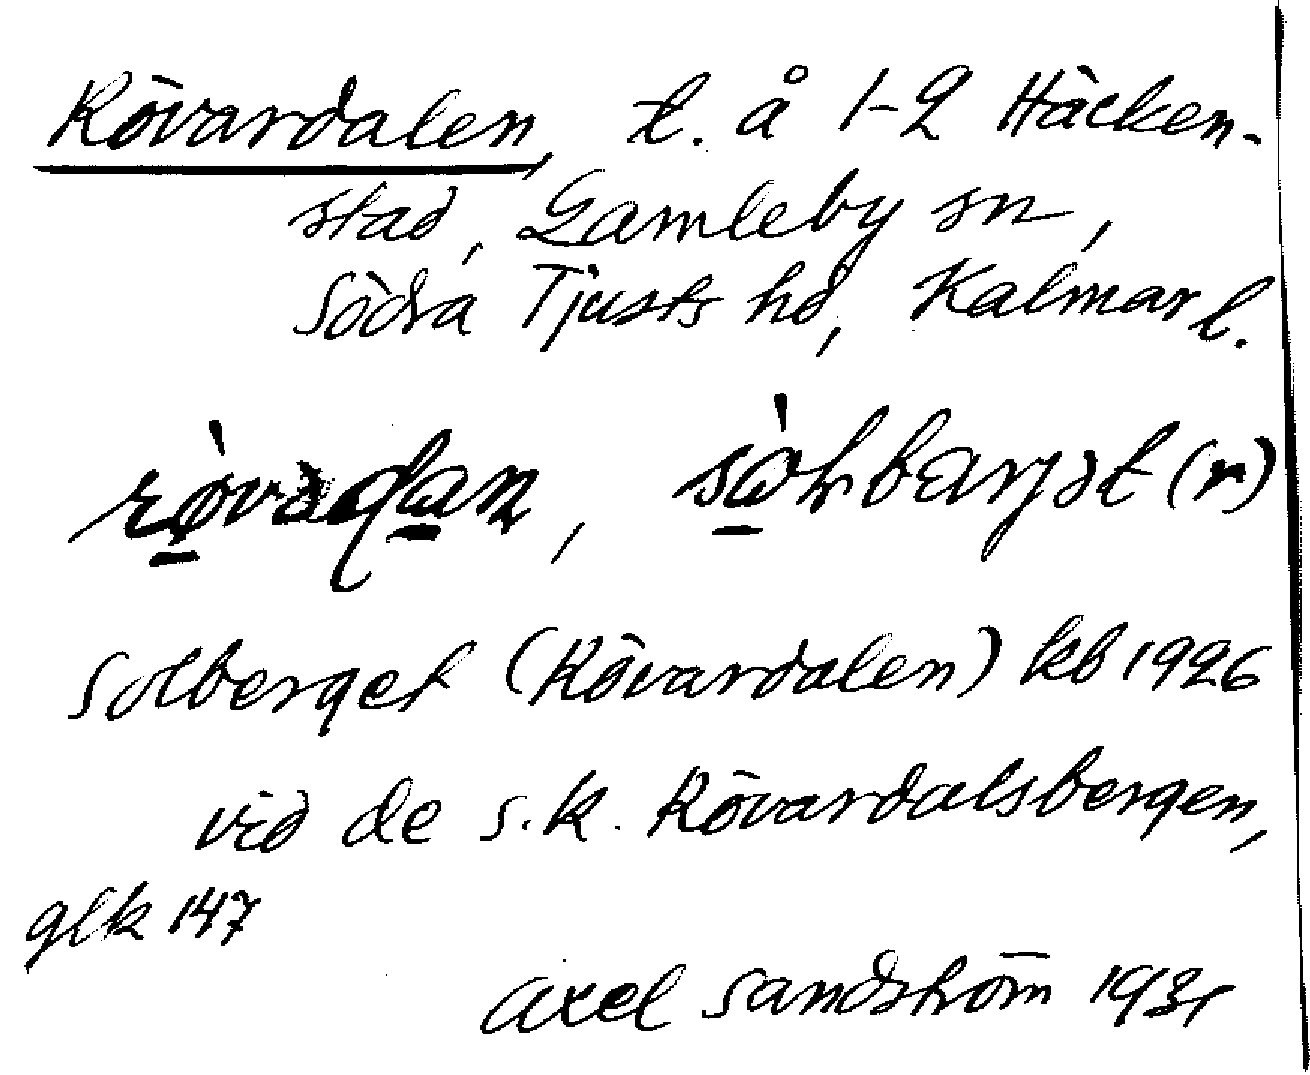 Rövardalen, t. å 1-2 Häcken-
stad, Gamleby sn,
Södra Tjusts hd, Kalmar l.
sòlbarjət (r)
Solberget (Rövardalen) kb 1926
vid de s.k. Rövardalsbergen,
glk 147
Axel Sandström 1931